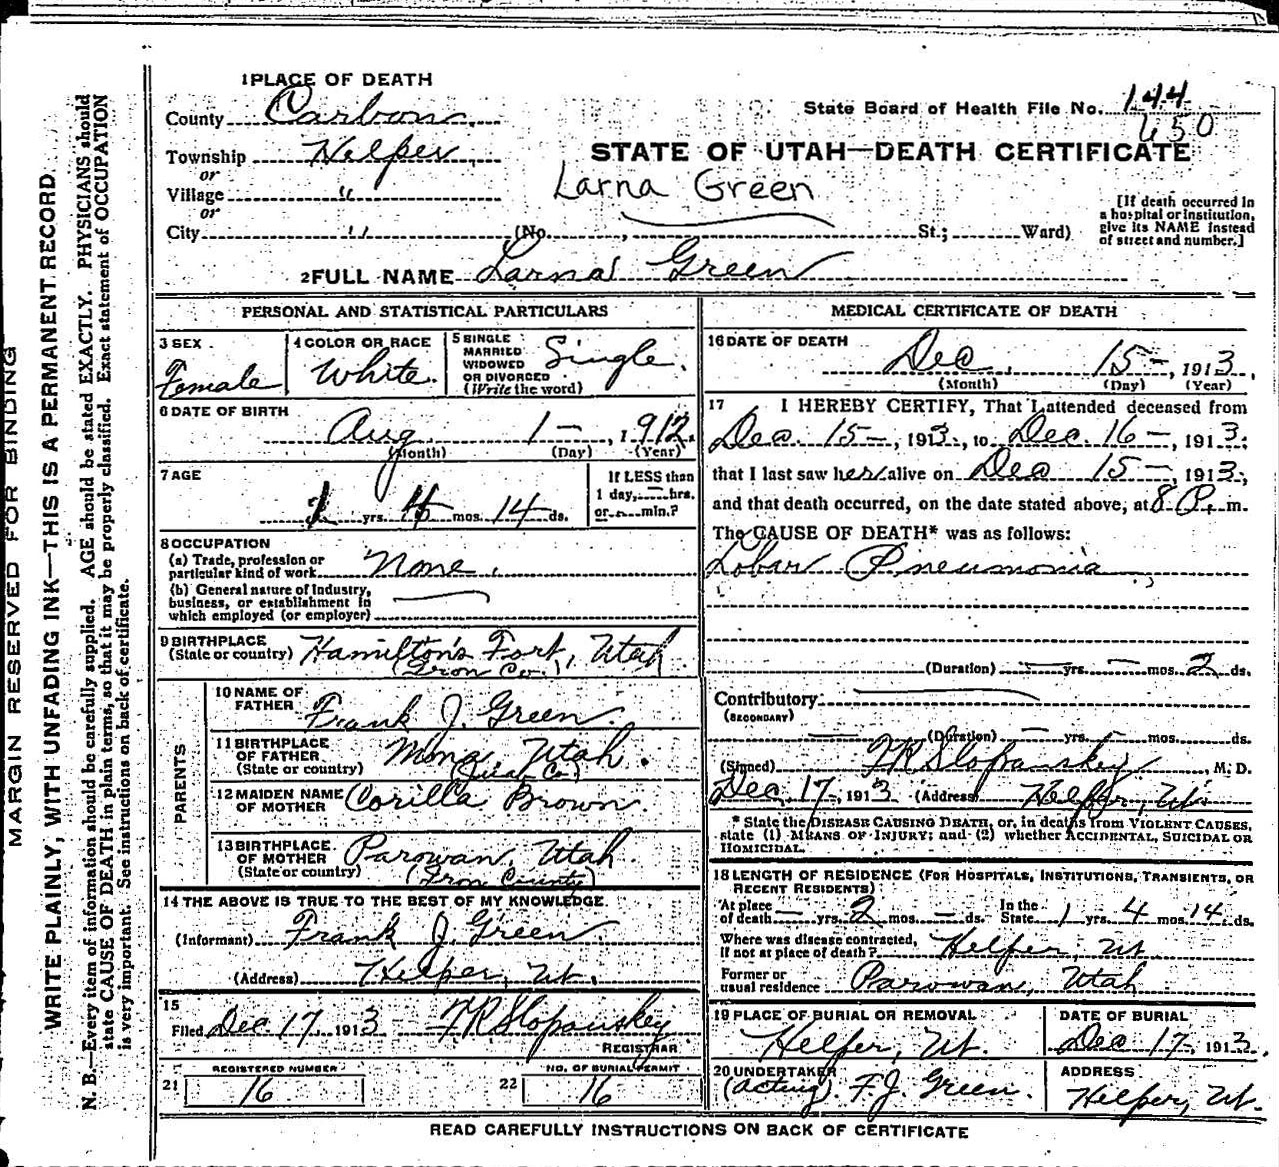 1 PLACE OF DEATH
County Carbon
State Board of Health File No. 144
650
Township Helper
or
STATE OF UTAH—DEATH CERTIFICATE
Village "
or
Larna Green
[If death occurred in a hospital or institution, give its NAME instead of street and number.]
City " (No. , St.; Ward)
2 FULL NAME Larna Green
PERSONAL AND STATISTICAL PARTICULARS
3 SEX Female
4 COLOR OR RACE White.
5 SINGLE MARRIED WIDOWED OR DIVORCED (Write the word) Single.
6 DATE OF BIRTH
Aug 1 — , 1912.
(Month) (Day) (Year)
7 AGE
1 yrs. 4 mos. 14 ds.
If LESS than 1 day, — hrs. or — min.?
8 OCCUPATION
(a) Trade, profession or particular kind of work None.
(b) General nature of Industry, business, or establishment in which employed (or employer)
9 BIRTHPLACE (State or country) Hamilton's Fort, Utah
(Iron Co.)
PARENTS
10 NAME OF FATHER Frank J. Green.
11 BIRTHPLACE OF FATHER (State or country) Mona, Utah.
(Juab Co)
12 MAIDEN NAME OF MOTHER Corilla Brown.
13 BIRTHPLACE OF MOTHER (State or country) Parowan, Utah.
(Iron County)
14 THE ABOVE IS TRUE TO THE BEST OF MY KNOWLEDGE.
(Informant) Frank J. Green
(Address) Helper, Ut.
15
Filed Dec. 17, 1913 F R Slopanskey
REGISTRAR
REGISTERED NUMBER
21 16
NO. OF BURIAL PERMIT
22 16
MEDICAL CERTIFICATE OF DEATH
16 DATE OF DEATH
Dec. 15 —, 1913.
(Month) (Day) (Year)
17 I HEREBY CERTIFY, That I attended deceased from
Dec. 15 —, 1913, to Dec. 16 —, 1913;
that I last saw her alive on Dec 15 —, 1913;
and that death occurred, on the date stated above, at 8 P. m.
The CAUSE OF DEATH* was as follows:
Lobar Pneumonia
(Duration) — yrs. — mos. 2 ds.
Contributory
(SECONDARY)
(Duration) — yrs. — mos. ds.
(Signed) F R Slopanskey, M. D.
Dec. 17, 1913 (Address) Helper, Ut.
* State the DISEASE CAUSING DEATH, or, in deaths from VIOLENT CAUSES, state (1) MEANS OF INJURY; and (2) whether ACCIDENTAL, SUICIDAL OR HOMICIDAL.
18 LENGTH OF RESIDENCE (FOR HOSPITALS, INSTITUTIONS, TRANSIENTS, OR RECENT RESIDENTS)
At place of death — yrs. 2 mos. — ds. In the State 1 yrs. 4 mos. 14 ds.
Where was disease contracted, if not at place of death? Helper, Ut
Former or usual residence Parowan, Utah
19 PLACE OF BURIAL OR REMOVAL
Helper, Ut.
DATE OF BURIAL
Dec 17, 1913.
20 UNDERTAKER
(acting) F. J. Green.
ADDRESS
Helper, Ut.
READ CAREFULLY INSTRUCTIONS ON BACK OF CERTIFICATE
MARGIN RESERVED FOR BINDING
WRITE PLAINLY, WITH UNFADING INK—THIS IS A PERMANENT RECORD
N. B.—Every item of information should be carefully supplied. AGE should be stated EXACTLY. PHYSICIANS should
state CAUSE OF DEATH in plain terms, so that it may be properly classified. Exact statement of OCCUPATION
is very important. See instructions on back of certificate.